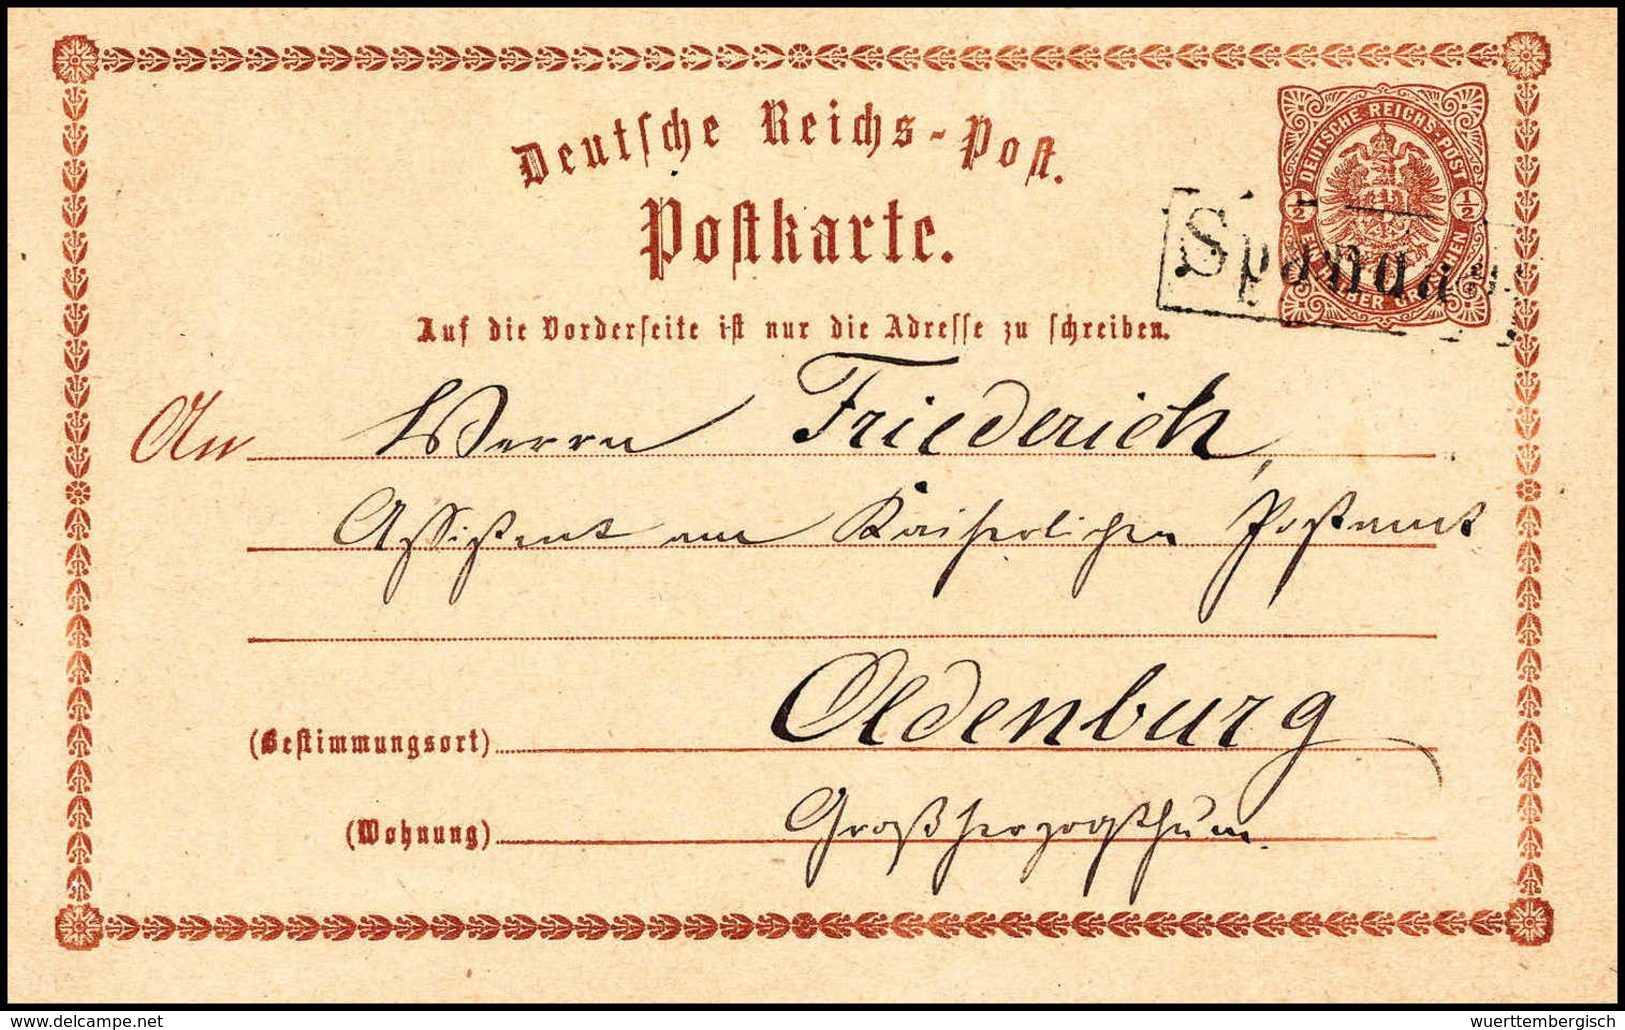 Deutsche Reichs-Post.
Postkarte.
DEUTSCHE REICHS-POST
½ ½
EIN HALBER GROSCHEN
Spandau
Auf die Vorderseite ist nur die Adresse zu schreiben.
An Herrn Friederich,
Assistent am Kaiserlichen Postamt
Oldenburg
(Bestimmungsort)
Großherzogthum
(Wohnung)
© www.delcampe.net
wuerttembergisch